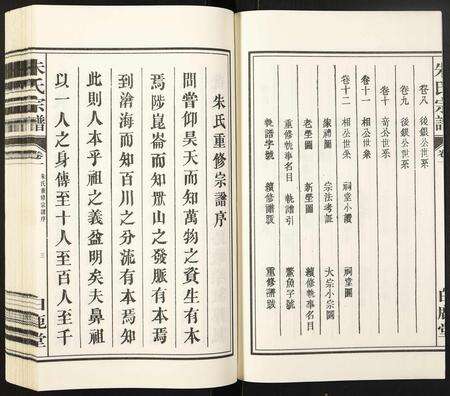 朱氏宗譜
卷一
卷八 後銀公世系
卷九 後銀公世系
卷十 奇公世系
卷十一 相公世系
卷十二 相公世系 祠堂小識 祠堂圖
像禮圖 宗法考証 大宗小宗圖
老塋圖 新塋圖 續修執事名目
重修執事名目 軌譜引
軌譜字號 續修譜跋 重修譜跋
白鹿堂
朱氏重修宗譜序
間嘗仰昊天而知萬物之資生有本
焉陟崑崙而知眾山之發脈有本焉
到滄海而知百川之分流有本焉知
此則人本乎祖之義益明矣夫鼻祖
以一人之身傳至十人至百人至千
朱氏宗譜
卷一
朱氏重修宗譜序
三
白鹿堂